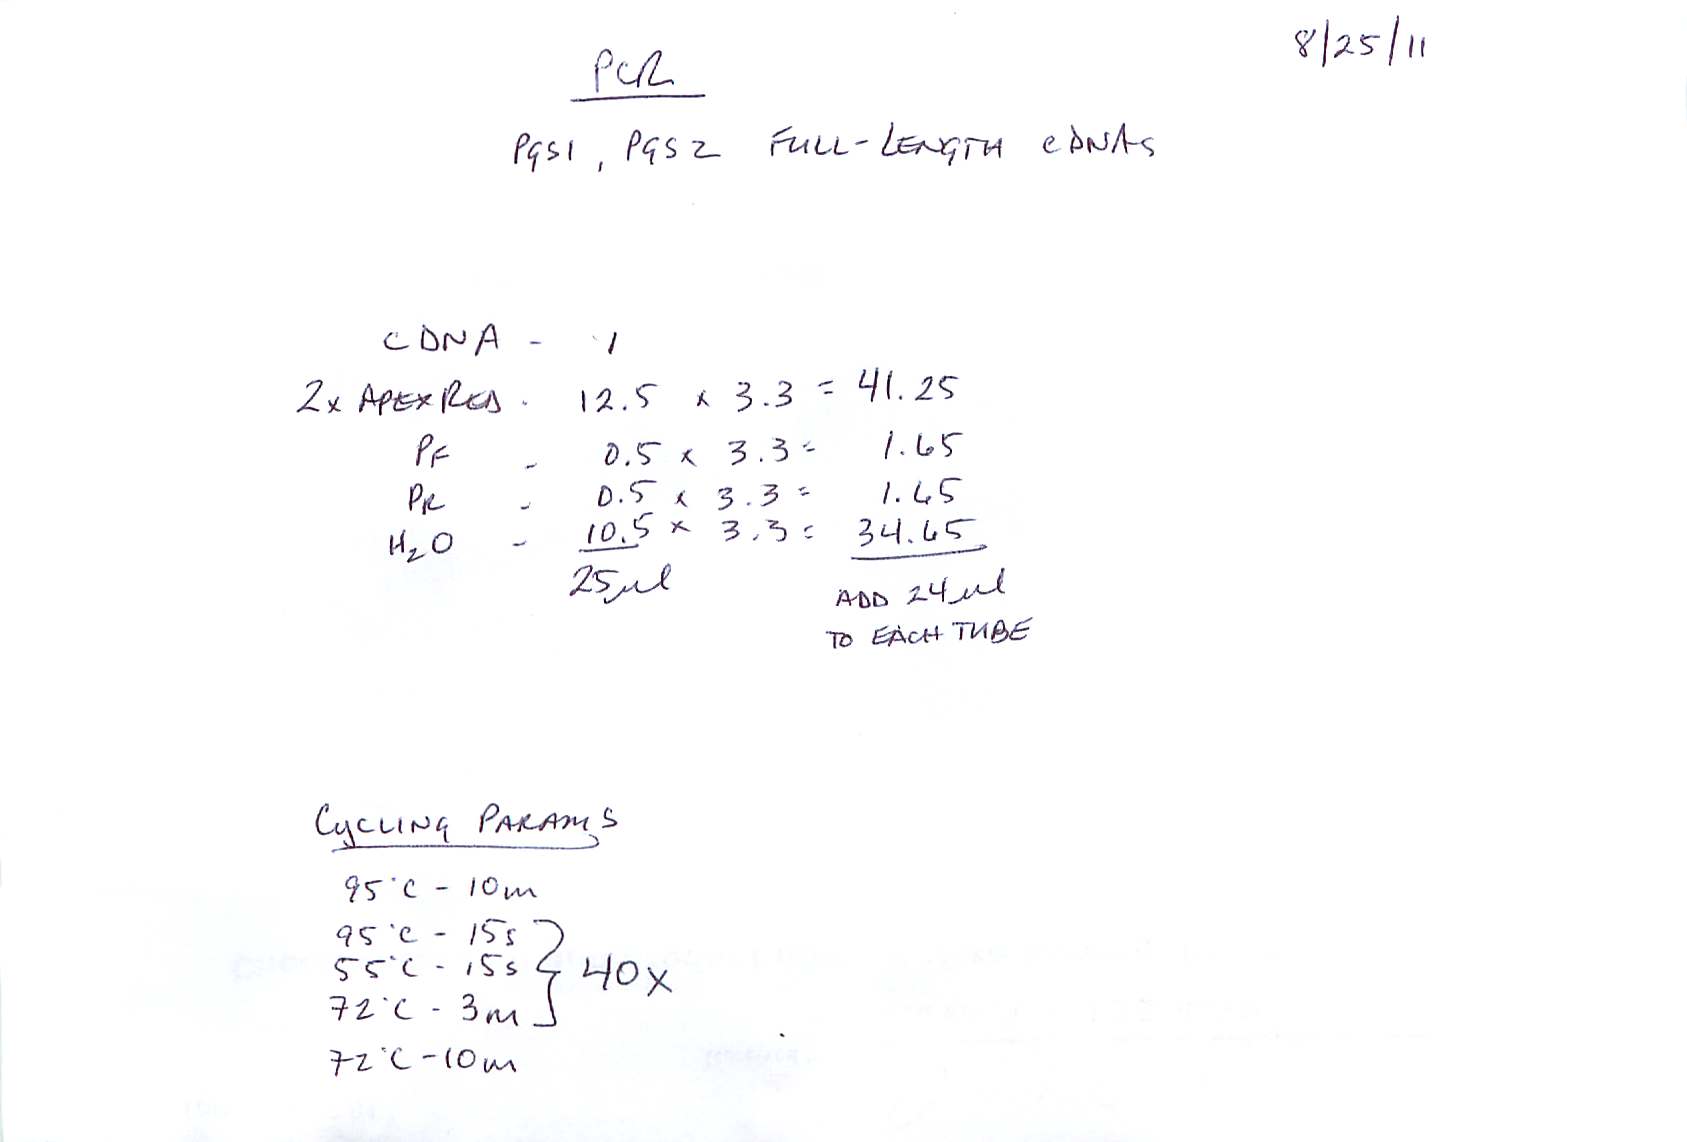 8/25/11
PCR
PGS1, PGS2 FULL-LENGTH cDNAs
cDNA - 1
2x APEX RED - 12.5 x 3.3 = 41.25
PF - 0.5 x 3.3 = 1.65
PR - 0.5 x 3.3 = 1.65
H2O - 10.5 x 3.3 = 34.65
25µl
ADD 24µl
TO EACH TUBE
CYCLING PARAMS
95°C - 10m
95°C - 15s
55°C - 15s
40x
72°C - 3m
72°C - 10m